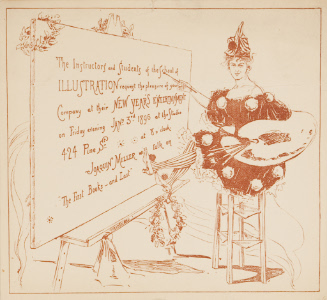 The Instructors and Students of the School of
ILLUSTRATION request the pleasure of your
Company at their NEW YEAR'S ENTERTAINMENT
on Friday evening JAN 3rd 1896 at the Studio
424 Pine St. at 8 o'clock.
JOAQUIN MILLER will talk on
"The First Books - and Last"